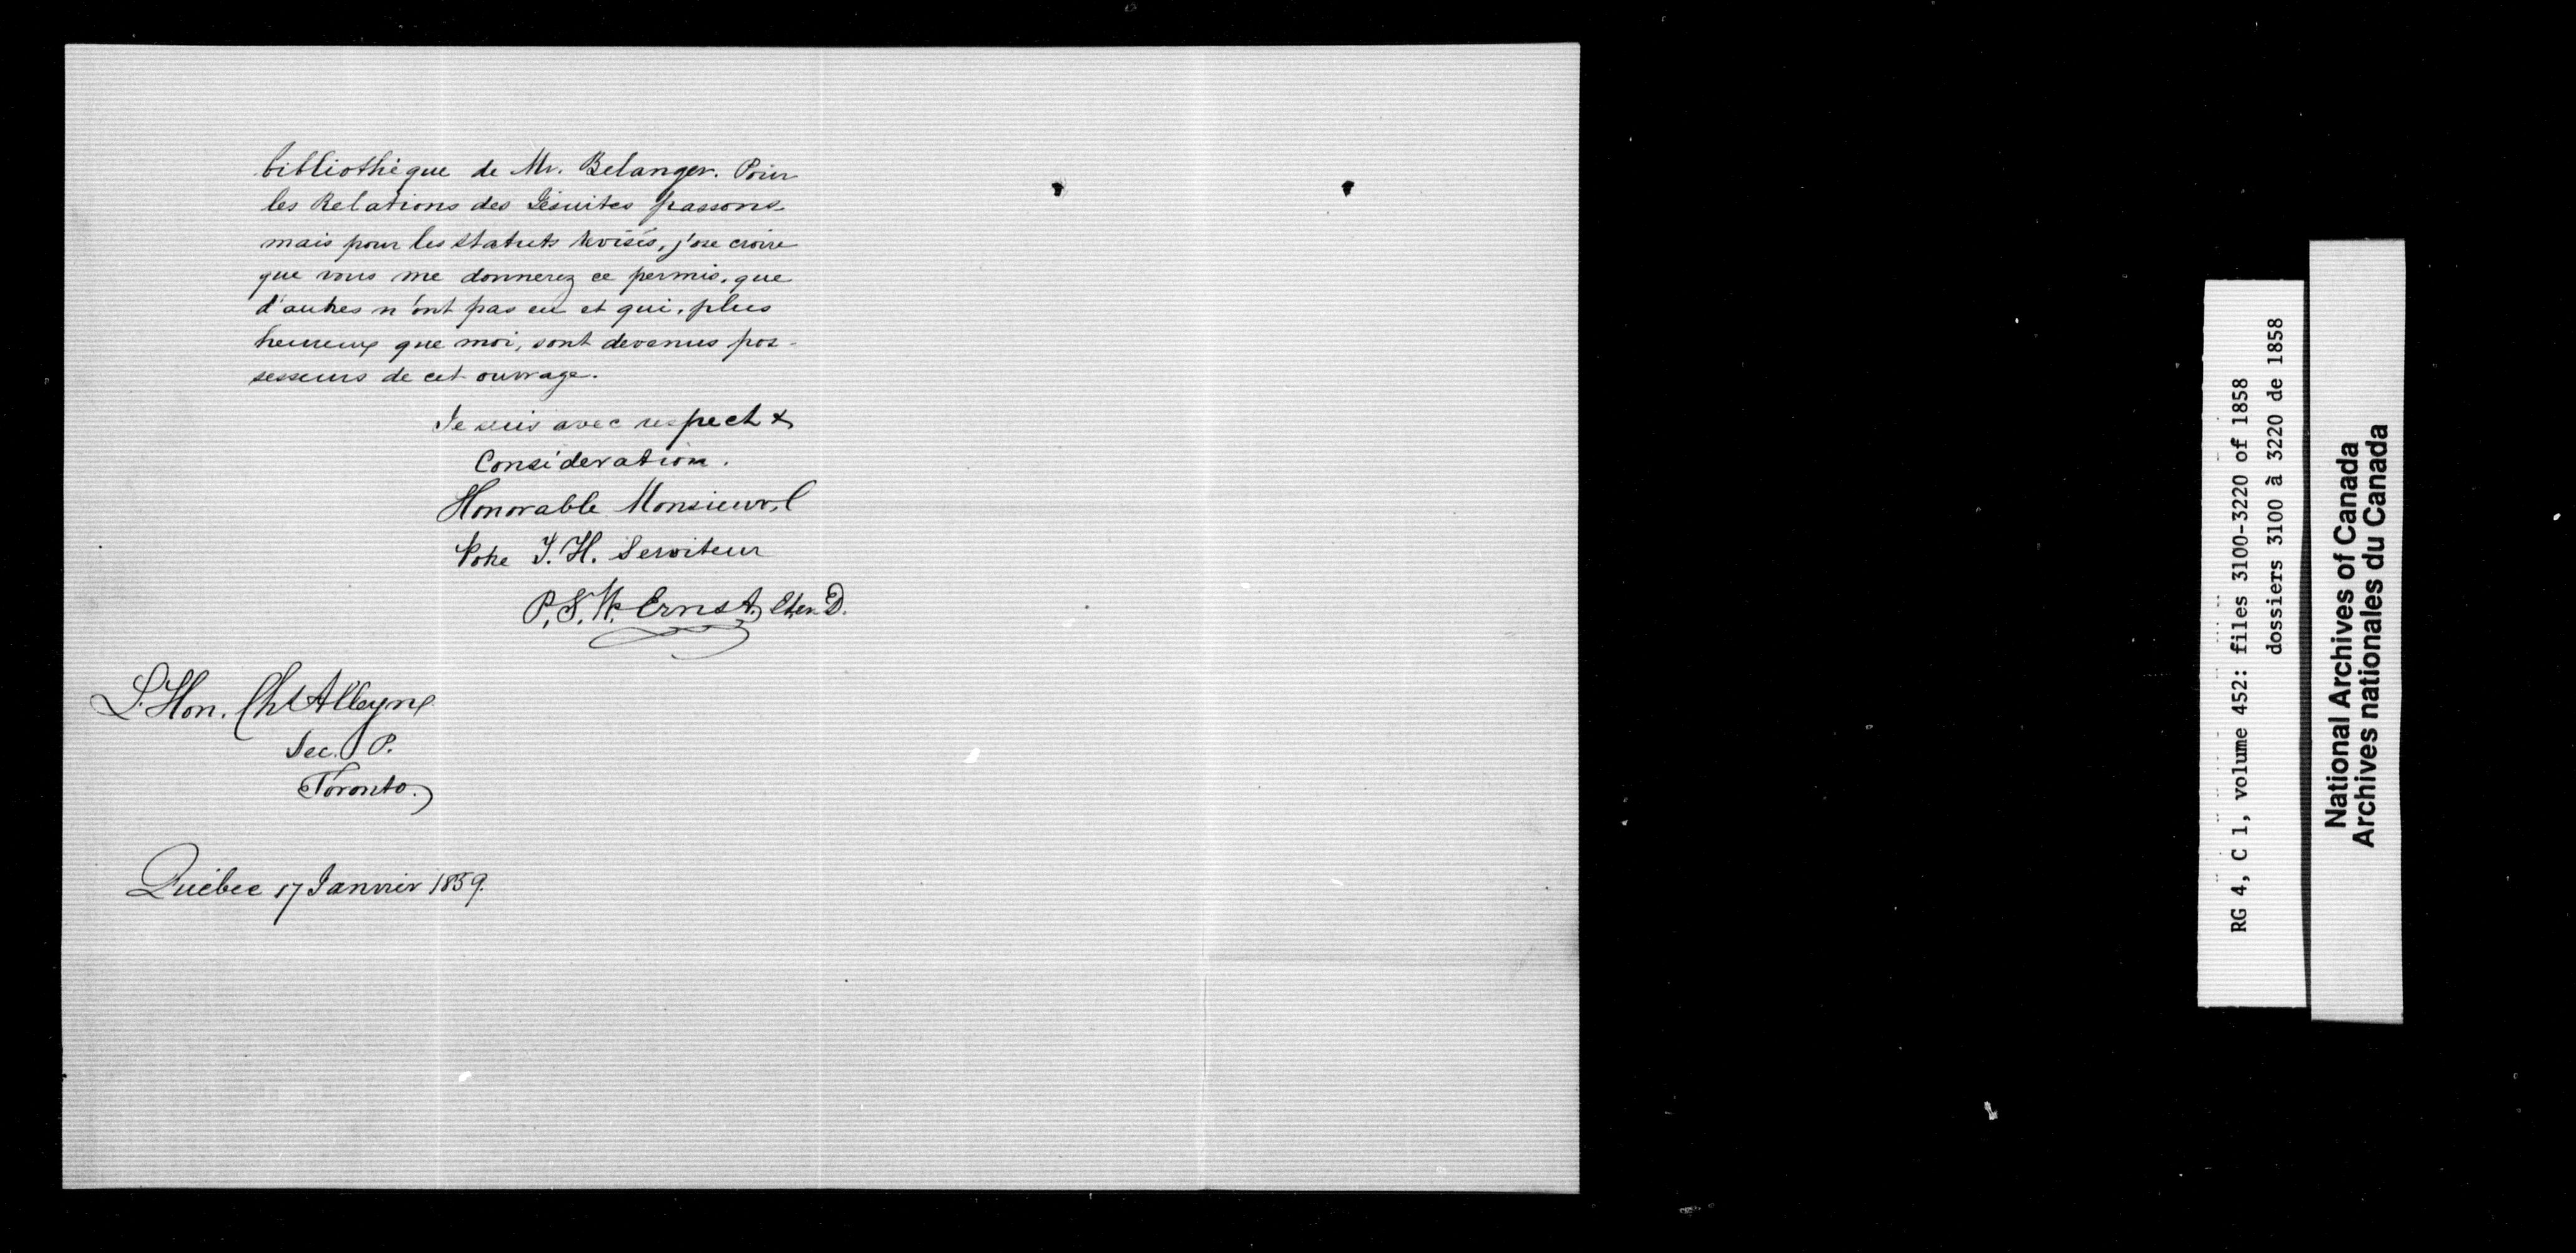 bibliothèque de Mr. Belanger. Pour
les Relations des Jésuites passons
mais pour les Statuts Revisés, j'ose croire
que vous me donnerez ce permis, que
d'autres n'ont pas eu et qui, plus
heureux que moi, sont devenus pos-
sesseurs de cet ouvrage.
Je suis avec respect &
Consideration.
Honorable Monsieur,
Votre T. H. Serviteur
P. S. Ernst,
L'Hon. Chs Alleyne
Sec. P.
Toronto.
Québec 17 Janvier 1859.
RG 4, C 1, volume 452: files 3100-3220 of 1858
dossiers 3100 à 3220 de 1858
National Archives of Canada
Archives nationales du Canada